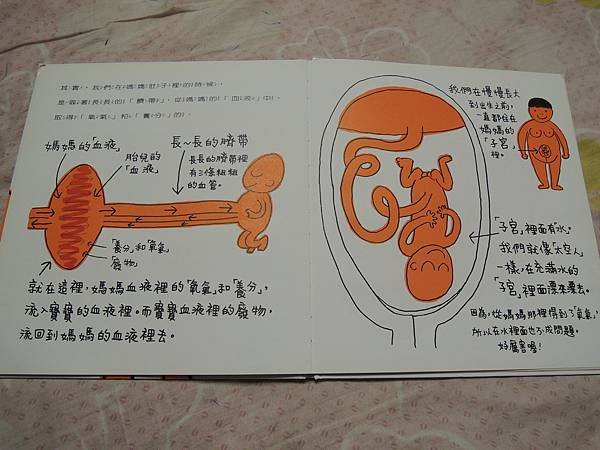 其實，我們在媽媽肚子裡的時候，
是靠著長長的「臍帶」，從媽媽的「血液」中，
取得「氧氣」和「養分」的。
媽媽的「血液」
胎兒的
「血液」
長~長的臍帶
長長的臍帶裡
有三條粗粗
的血管。
「養分」和「氧氣」
「廢物」
就在這裡，媽媽血液裡的「氧氣」和「養分」，
流入寶寶的血液裡。而寶寶血液裡的廢物，
流回到媽媽的血液裡去。
我們在慢慢長大
到出生之前，
一直都住在
媽媽的
「子宮」
裡。
「子宮」裡面有「水」。
我們就像「太空人」
一樣，在充滿水的
「子宮」裡面漂來漂去。
因為，從媽媽那裡得到了「氧氣」，
所以在水裡面也不成問題。
好厲害喔！